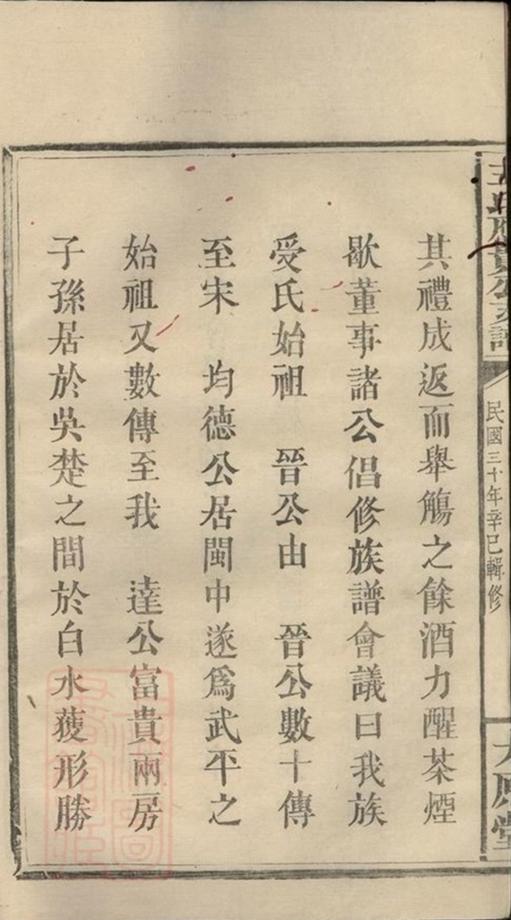 其禮成返而舉觴之餘酒力醒茶煙
歇董事諸公倡修族譜會議曰我族
受氏始祖 晉公由 晉公數十傳
至宋 均德公居閩中遂爲武平之
始祖又數傳至我 達公富貴兩房
子孫居於吳楚之間於白水獲形勝
民國三十年辛巳輯修